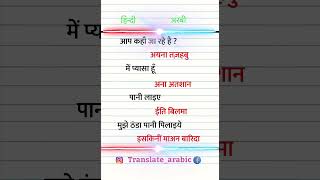 हिन्दी अरबी
आप कहाँ जा रहे है ?
अयना तज़हबु
में प्यासा हूँ
अना अतशान
पानी लाइए
ईति बिलमा
मुझे ठंडा पानी पिलाइये
इसकिनी माअन बारिदा
Translate_arabic